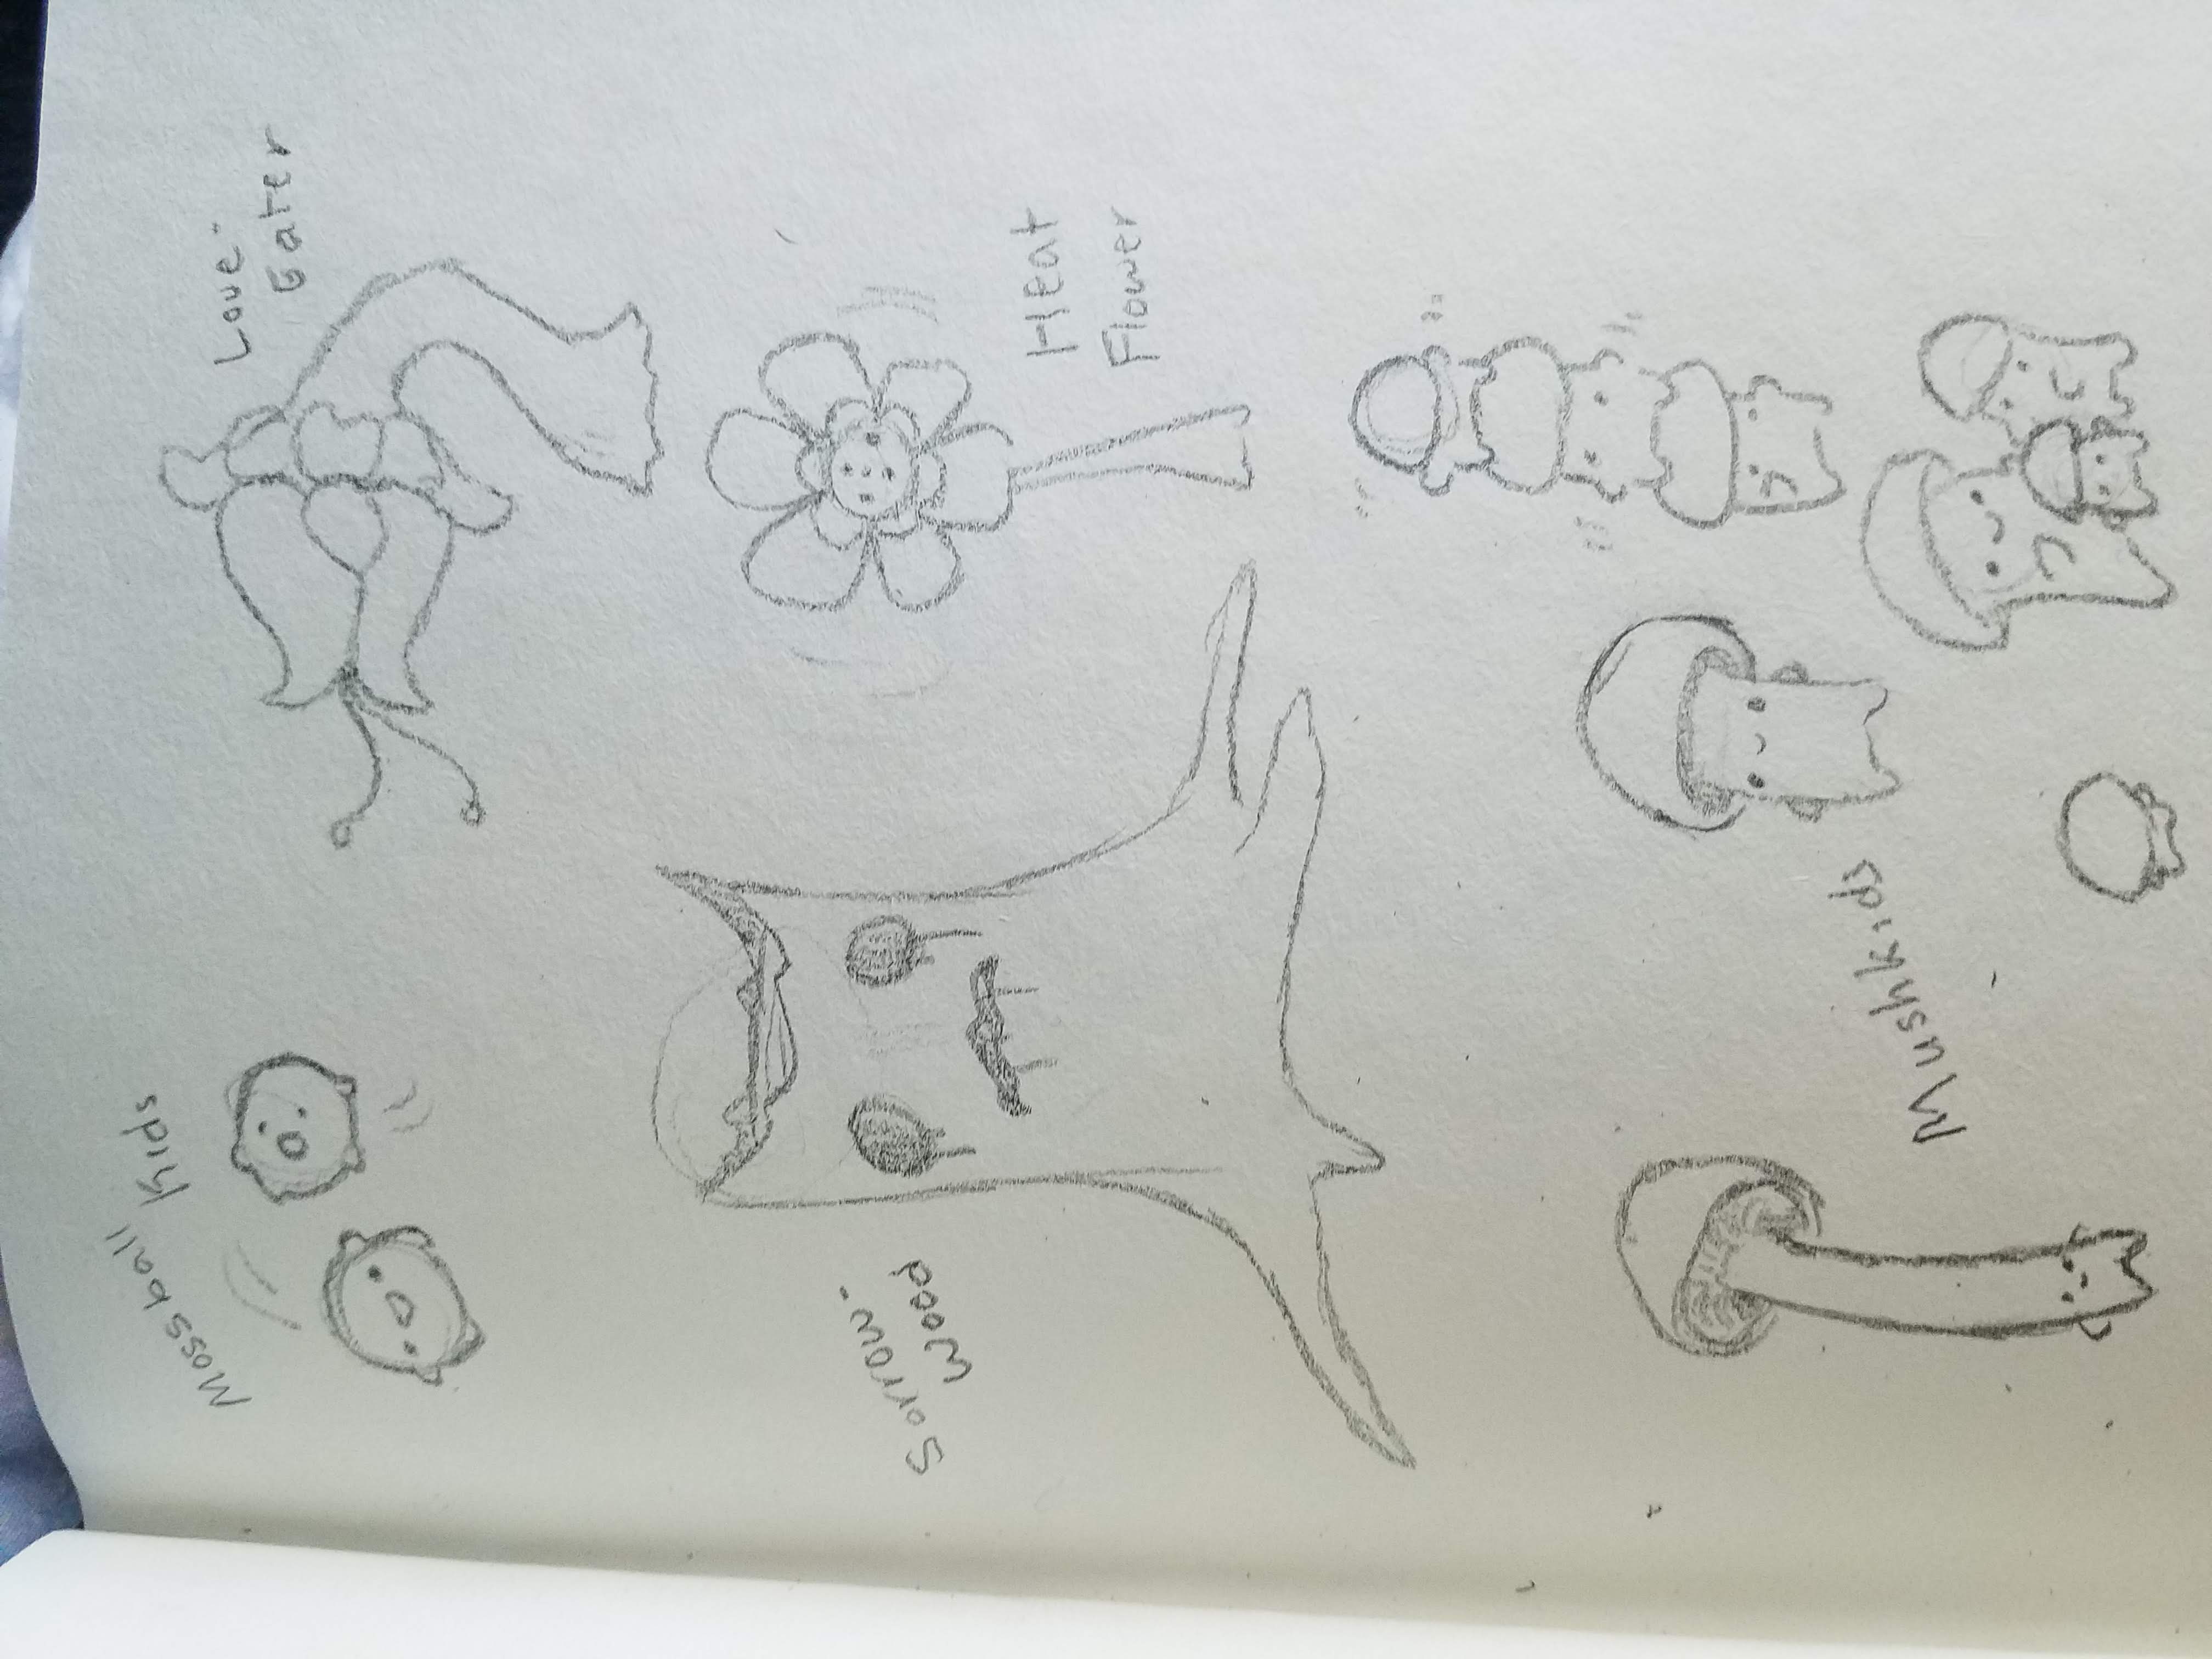 Mossball
Kids
Love-
Eater
Sorrow-
Wood
Heat
Flower
Mushkids